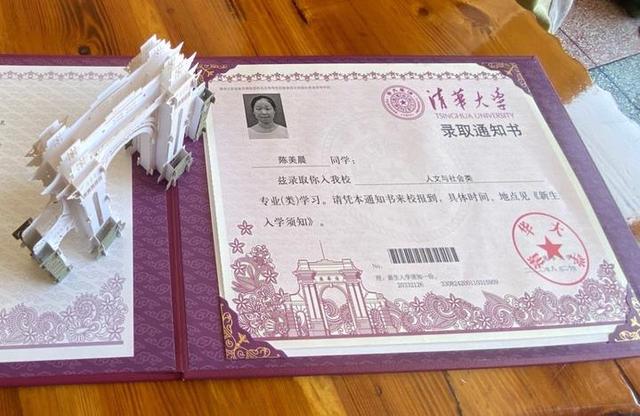 清华大学
TSINGHUA UNIVERSITY
录取通知书
陈美晨 同学：
兹录取你入我校 人文与社会类
专业(类)学习。请凭本通知书来校报到，具体时间、地点见《新生
入学须知》。
No.
附：新生入学须知一份。